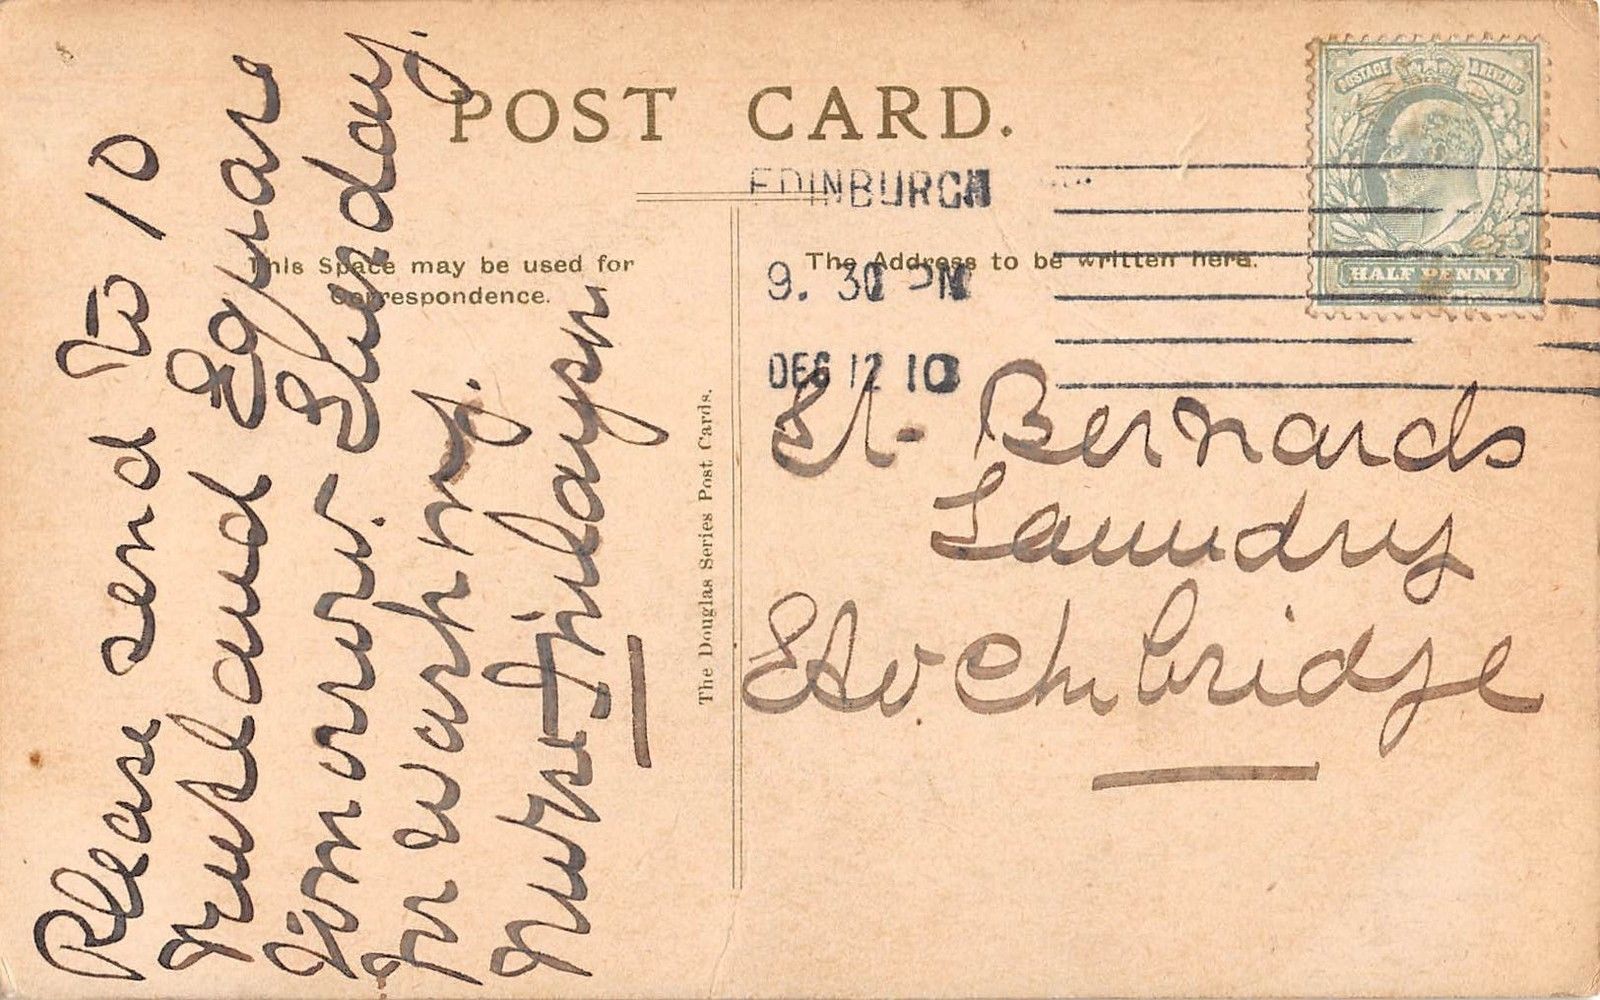 POST CARD.
This Space may be used for
Correspondence.
The Address to be written here.
POSTAGE & REVENUE
HALF PENNY
EDINBURGH
9. 30 PM
DEC 12 10
Please send to 10
Rutland Square
Tomorrow. Tuesday.
for washing.
Nurse Finlayson
The Douglas Series Post Cards.
St. Bernards
Laundry
Stockbridge